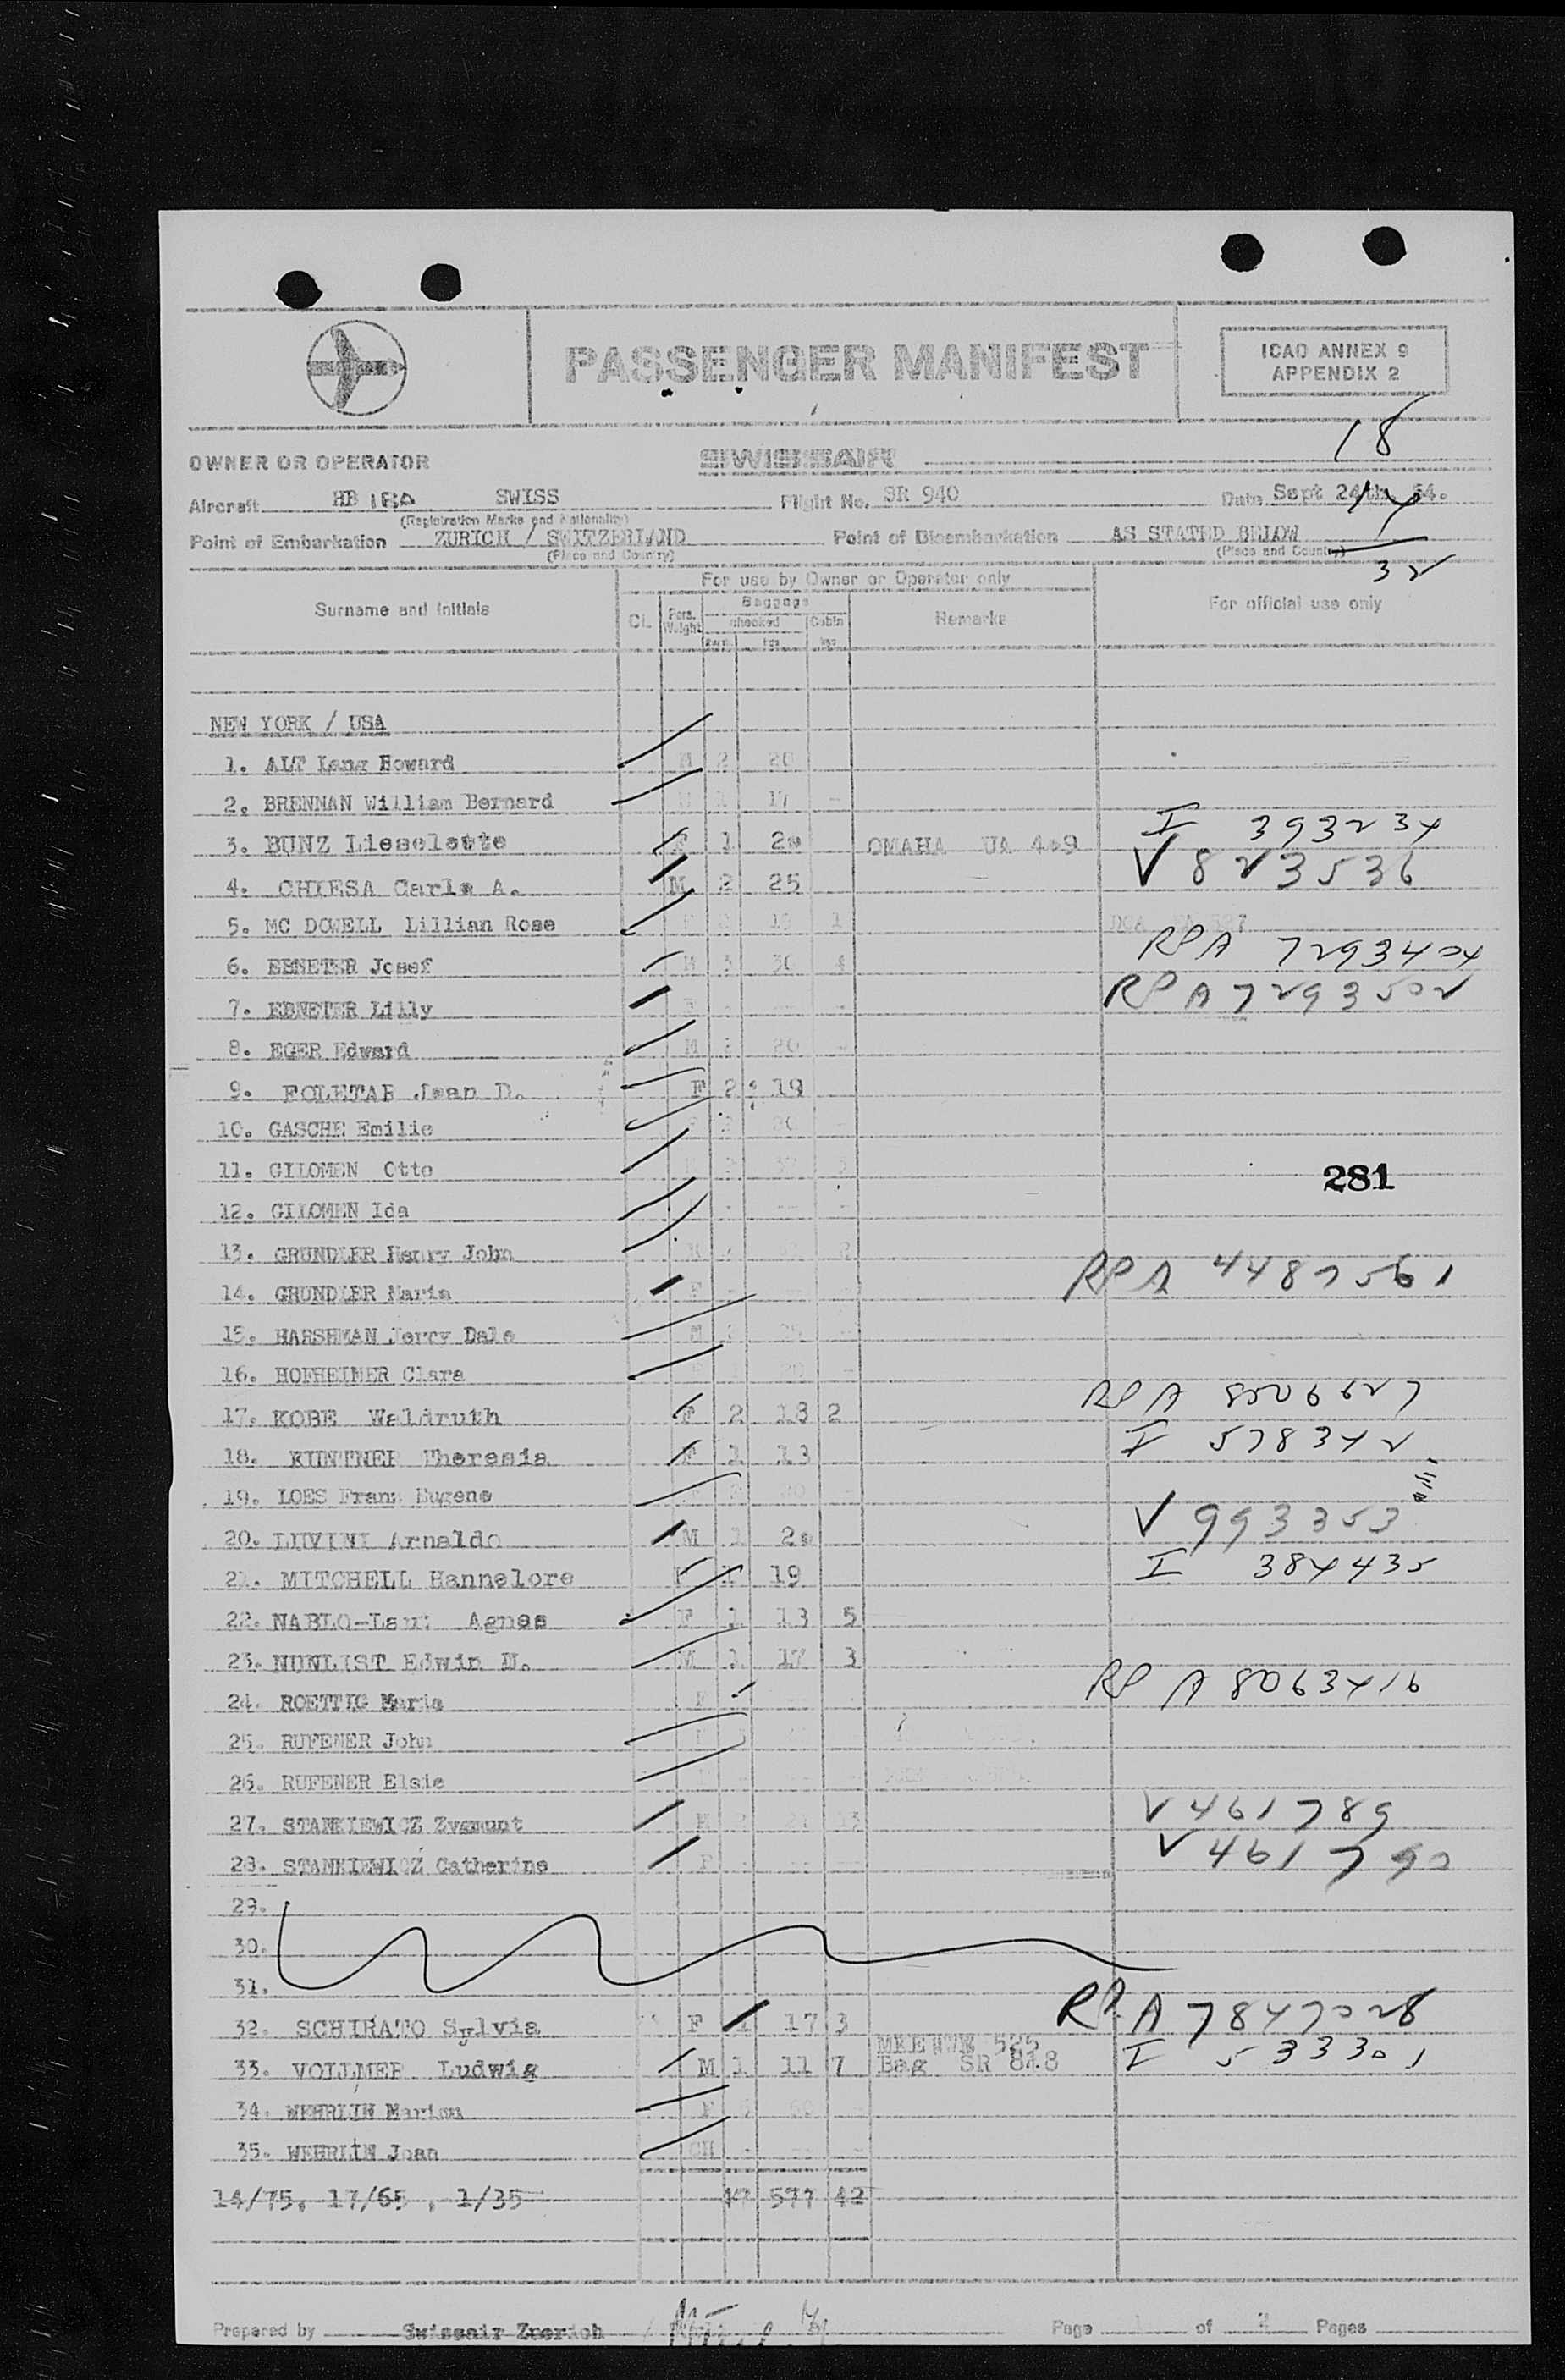 PASSENGER MANIFEST
ICAO ANNEX 9
APPENDIX 2
18
OWNER OR OPERATOR SWISSAIR
Aircraft HB SWISS Flight No. SR 940 Date Sept 24th 54.
14
(Registration Marks and Nationality)
Point of Embarkation ZURICH / SWITZERLAND Point of Disembarkation AS STATED BELOW
(Place and Country) (Place and Country)
32
For use by Owner or Operator only
Surname and Initials Cl. Pers. Weight Baggage checked kgs Cabin kgs Remarks For official use only
NEW YORK / USA
1. ALT Lang Howard M 2 20
2. BRENNAN William Bernard 17 -
3. BUNZ Lieselotte F 1 20 OMAHA UA 409 I 393234
4. CHIESA Carlo A. M 2 25 V 823536
5. MC DOWELL Lillian Rose 1
6. EBNETER Josef M 3 30 4 RP A 7293404
7. EBNETER Lilly RP A 7293502
8. EGER Edward M 20 -
9. FOLETAR Jean D. F 2 19
10. GASCHE Emilie
11. GILOMEN Otto
281
12. GILOMEN Ida
13. GRUNDLER Henry John
14. GRUNDLER Maria F RP A 4487561
15. HARSHMAN Jerry Dale M
16. HOFHEIMER Clara 20 -
17. KOBE Waldruth F 2 18 2 RP A 8206627
18. KUNTNER Theresia F 1 13 I 578342
19. LOES Franz Eugene
20. LUVINI Arnaldo M 1 20 V 993353
21. MITCHELL Hannelore F 1 19 I 384435
22. NABLO-Lanz Agnes F 1 13 5
23. NUNLIST Edwin M. M 1 17 3
24. ROETTIG Maria F RP A 8063416
25. RUFENER John
26. RUFENER Elsie
27. STANKIEWICZ Zygmunt M V 461789
28. STANKIEWICZ Catherine F V 461790
29.
30.
31.
32. SCHIRATO Sylvia F 1 17 3 RP A 7847028
33. VOLLMER Ludwig M 1 11 7 Bag SR 848 I 533301
34. WEHRLIN Marion F
35. WEHRLIN Joan CH
14/75, 17/65, 1/35 47 577 42
Prepared by Swissair Zuerich Page 1 of 2 Pages